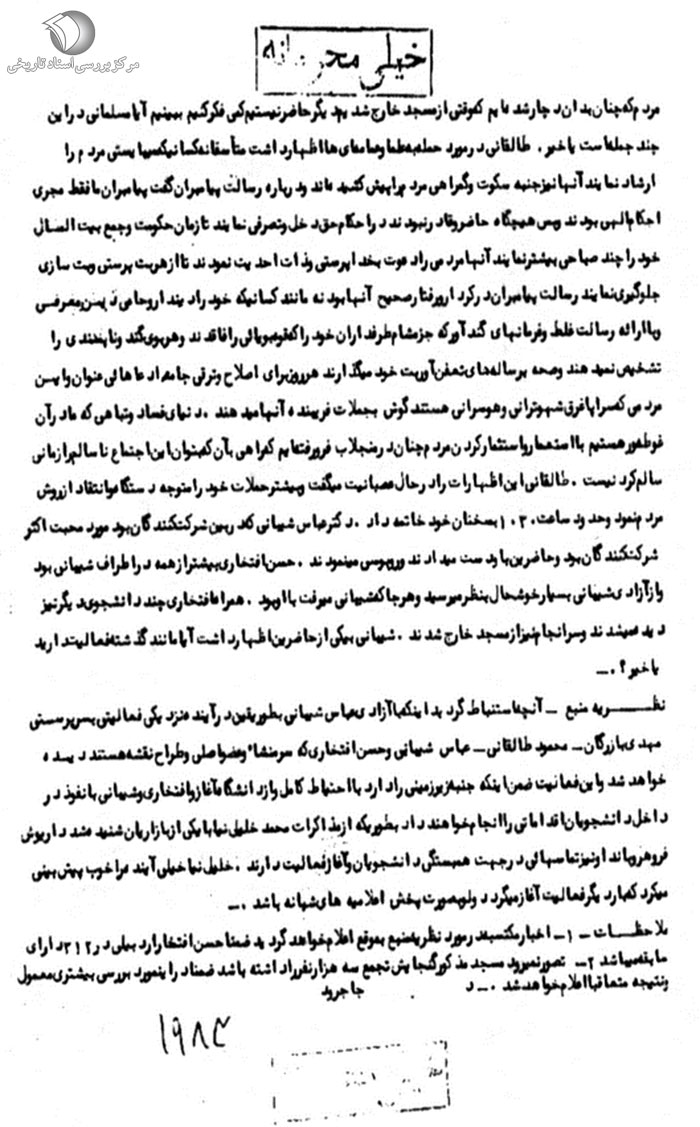 مرکز بررسی اسناد تاریخی
خیلی محرمانه
مردم که چنان بدان دچار شده‌ایم که وقتی از مسجد خارج شدیم دیگر حاضر نیستیم کمی فکر کنیم ببینیم آیا مسلمانی در این
چند جمله است یا خیر . طالقانی در مورد حمله به علما و عمامه‌ای ها اظهار داشت متأسفانه کسانیکه میبایستی مردم را
ارشاد نمایند آنها نیز جنبه سکوت و گمراهی مردم را پیش کشیده‌اند و درباره رسالت پیامبران گفت پیامبران ما فقط مجری
احکام الهی بودند و پس هیچگاه حاضر و قادر نبودند در احکام حق دخل و تصرفی نمایند تا زمان حکومت و جمع بیت المال
خود را چند صباحی بیشتر نمایند آنها مردم را دعوت بخداپرستی و ذات احدیت نمودند تا از هر بت پرستی و بت سازی
جلوگیری نمایند رسالت پیامبران در کردار و رفتار صحیح آنها بود نه مانند کسانیکه خود را دیندار و حامی دین معرفی
و با ارائه رسالت غلط و فرمانهای گندآور که جز مشام طرفداران خود را که قوه بویائی را فاقدند و هر بوی گند و ناپسندی را
تشخیص نمیدهند و صحه بر رساله‌های تعفن‌آور یت خود میگذارند هر روز برای اصلاح و ترقی جامعه ادعاهائی عنوان و این
مردمی که سراپا غرق شهوترانی و هوسرانی هستند گوش بجملات فریبنده آنها میدهند . دنیای فساد و تباهی که ما در آن
غوطه‌ور هستیم با استعمار و استثمار کردن مردم چنان در منجلاب فرو رفته‌ایم که راهی بآن که بتوان این اجتماع ناسالم را زمانی
سالم کرد نیست . طالقانی این اظهارات را در حال عصبانیت میگفت و بیشتر حملات خود را متوجه دستگاه و انتقاد از روش
مردم نمود و حدود ساعت ۱۰۳۰ بسخنان خود خاتمه داد . دکتر عباس شیبانی که در بین شرکت‌کنندگان بود مورد محبت اکثر
شرکت‌کنندگان بود و حاضرین با او دست میدادند و روبوسی مینمودند . حسن افتخاری بیشتر از همه در اطراف شیبانی بود
و از آزادی شیبانی بسیار خوشحال بنظر میرسید و هر جا که شیبانی میرفت با او بود . همراه افتخاری چند دانشجوی دیگر نیز
دیده میشدند و سرانجام نیز از مسجد خارج شدند . شیبانی بیکی از حاضرین اظهار داشت آیا مانند گذشته فعالیت دارید
یا خیر ؟ .ـ
نظریه منبع ـ آنچه استنباط گردید اینکه با آزادی عباس شیبانی بطور یقین در آینده نزدیکی فعالیتی بسرپرستی
مهدی بازرگان ـ محمود طالقانی ـ عباس شیبانی و حسن افتخاری که سرمنشاء و عضو اصلی و طراح نقشه هستند دیده
خواهد شد و این فعالیت ضمن اینکه جنبه زیرزمینی را دارد با احتیاط کامل و از دانشگاه آغاز و افتخاری و شیبانی با نفوذ در
داخل دانشجویان اقداماتی را انجام خواهند داد بطوریکه از مذاکرات محمد خلیل‌نیا با یکی از بازاریان شنیده شد داریوش
فروهر و باند او نیز تماسهائی در جهت همبستگی دانشجویان و آغاز فعالیت دارند . خلیل‌نیا خیلی آینده را خوب پیش بینی
میکرد که بار دیگر فعالیت آغاز میگردد ولو بصورت پخش اعلامیه های شبانه باشد .ـ
ملاحظات ـ ۱ـ اخبار مکتسبه در مورد نظریه منبع بموقع اعلام خواهد گردید ضمنا حسن افتخار اردبیلی در ۳۱۲ دارای
سابقه میباشد ۲ـ تصور نمیرود مسجد مذکور گنجایش تجمع سه هزار نفر را داشته باشد ضمنا در اینمورد بررسی بیشتری معمول
و نتیجه متعاقبا اعلام خواهد شد .ـ د جاجرود
۱۹۸۳